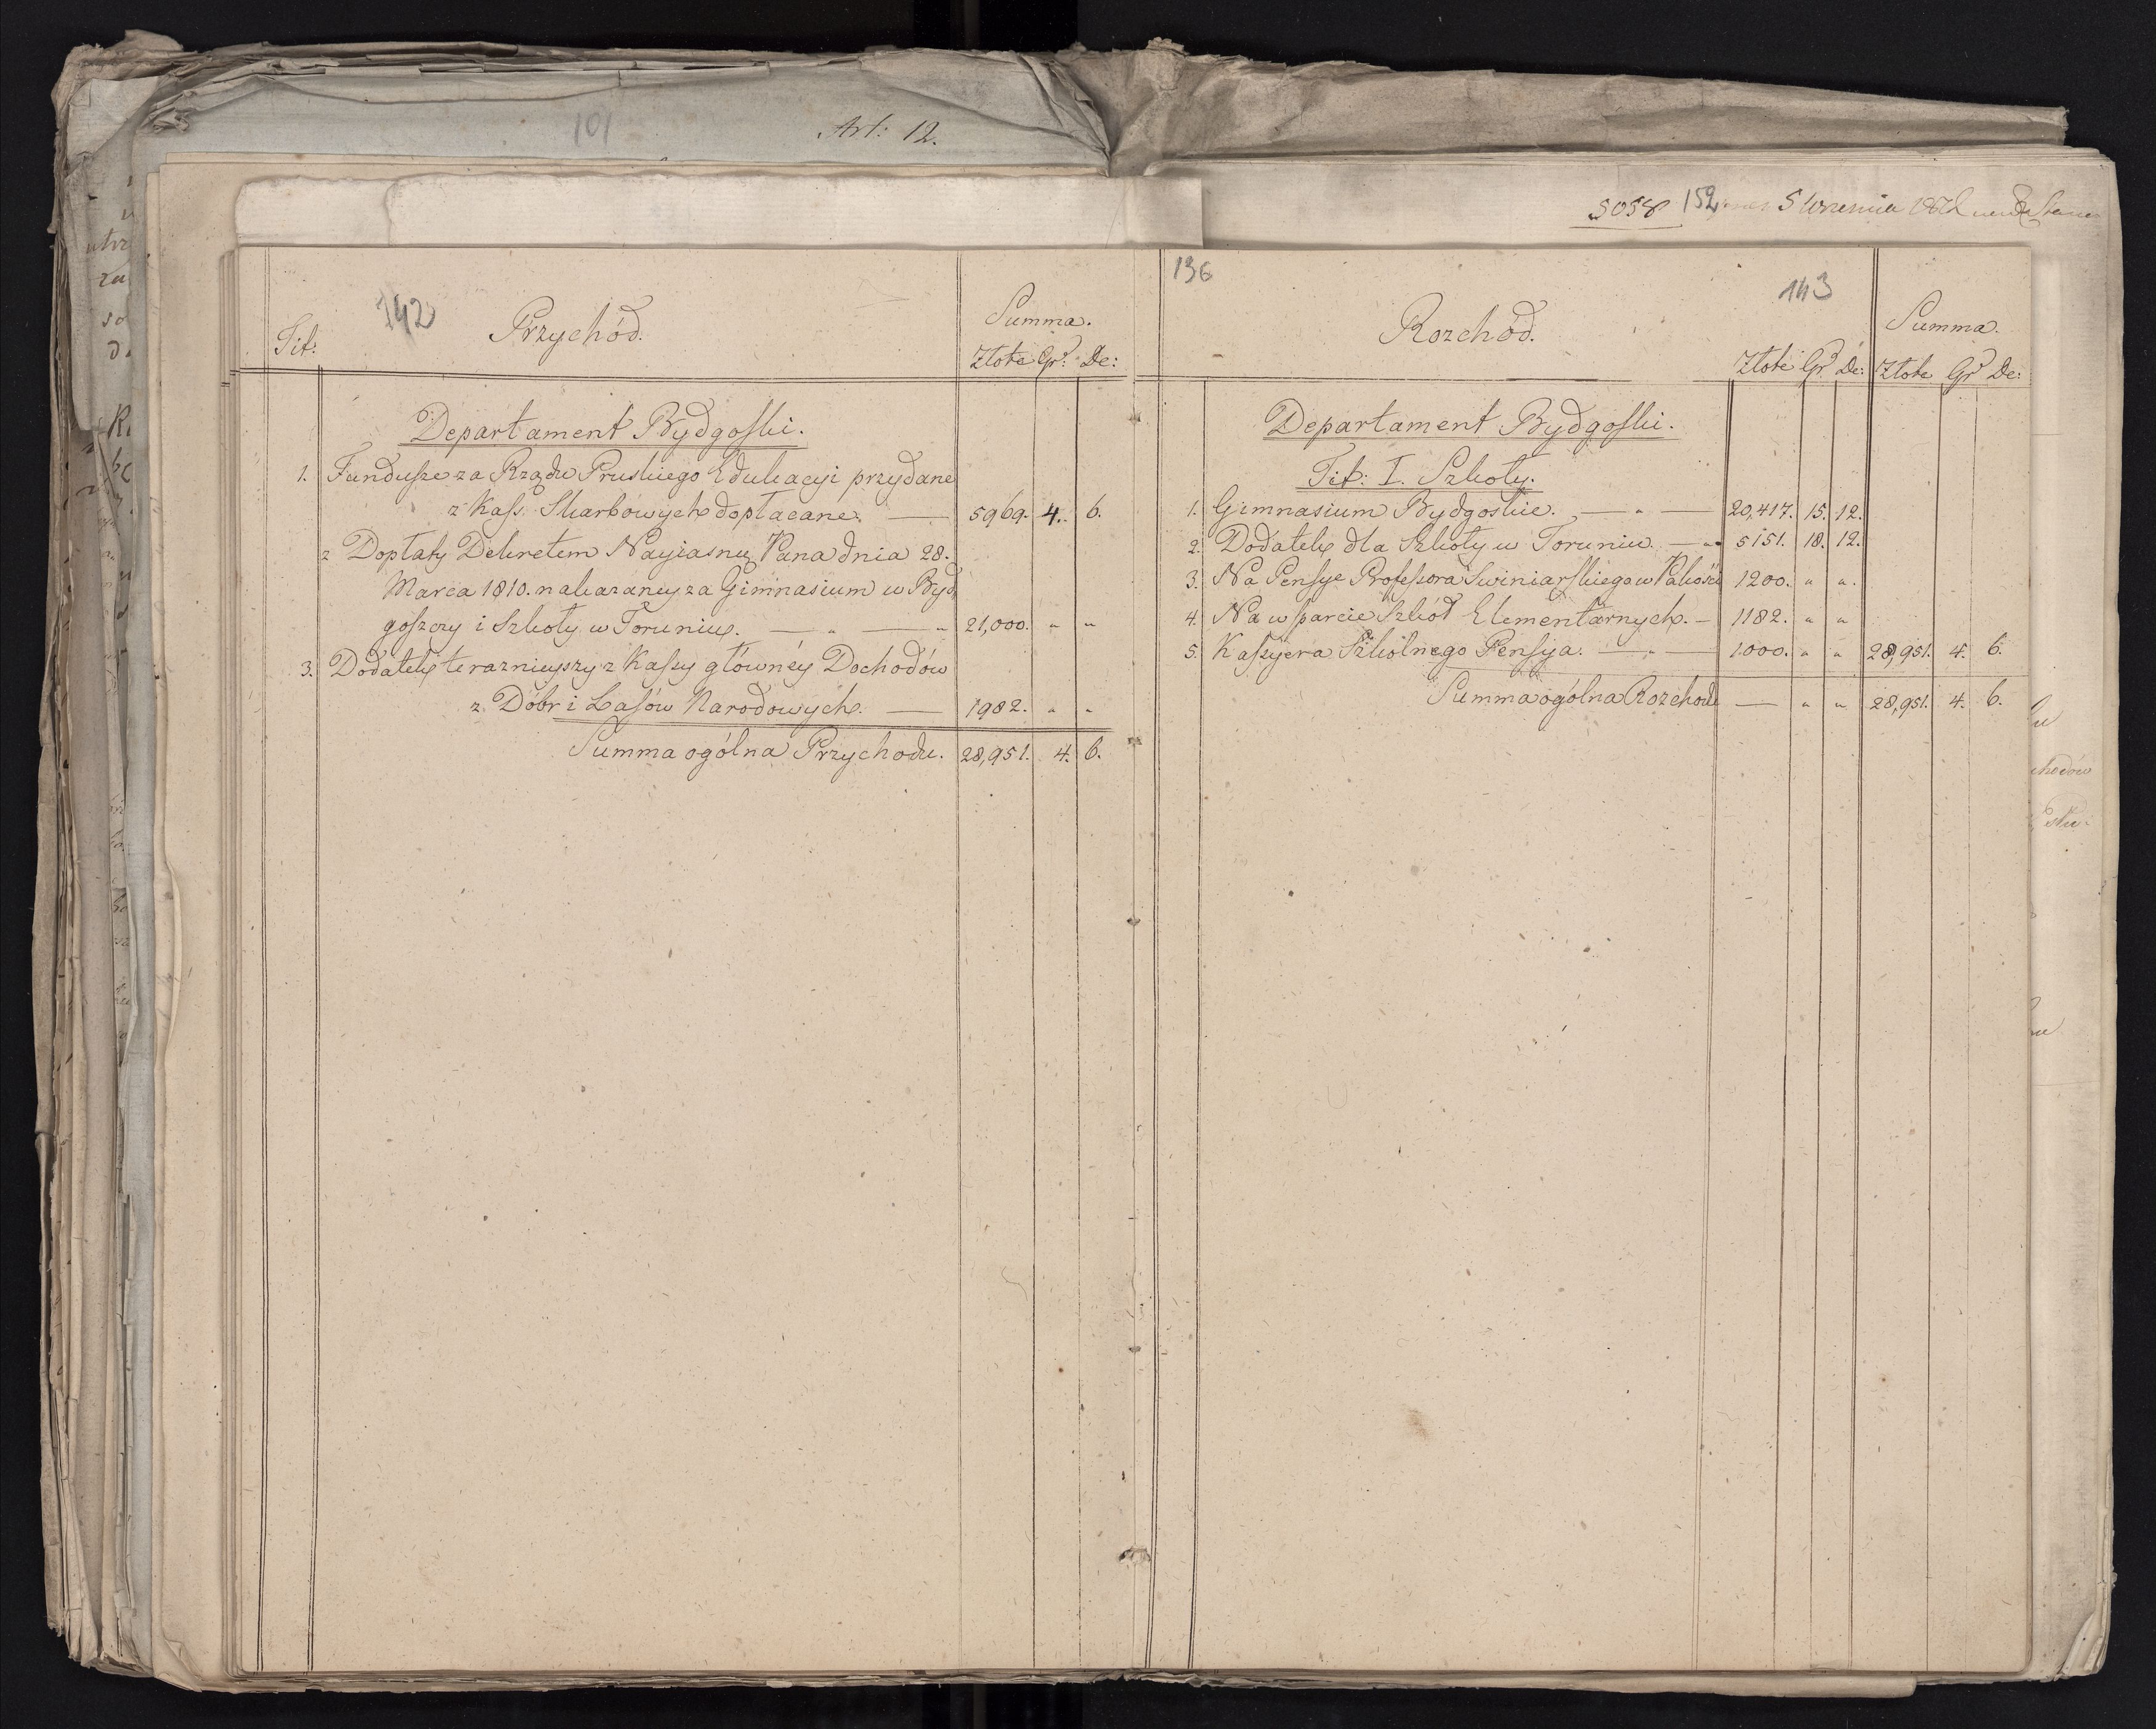 101 Art: 12.
5058 152 5 Wrzesnia
142
Tit: Przychód. Summa.
Złote Gr: De:
Departament Bydgoski.
1. Fundusze za Rządu Pruskiego Edukacyi przydane
z Kass Skarbowych dopłacane. — 5969. 4. 6.
2 Dopłaty Dekretem Nayiasnię Pana dnia 28.
Marca 1810. nakazaney za Gimnasium w Byd
goszczy i Szkoły w Toruniu. — " — " 21,000. " "
3. Dodatek teraznieyszy z Kassy główney Dochodów
z Dóbr i Lasów Narodowych. — 1982. " "
Summa ogólna Przychodu. 28,951. 4. 6.
136 143
Rozchód. Summa.
Złote Gr De: Złote Gr De:
Departament Bydgoski.
Tit: I. Szkoły.
1. Gimnasium Bydgoskie. — " — 20,417. 15. 12.
2. Dodatek dla Szkoły w Toruniu. — " 5151. 18. 12.
3. Na Pensye Professora Swiniarskiego w Pakości 1200. " ".
4. Na wsparcie Szkół Elementarnych. — 1182. " "
5. Kassyera Szkólnego Pensya. — " — 1000. " " 28,951. 4. 6.
Summa ogólna Rozchodu — " " 28,951. 4. 6.